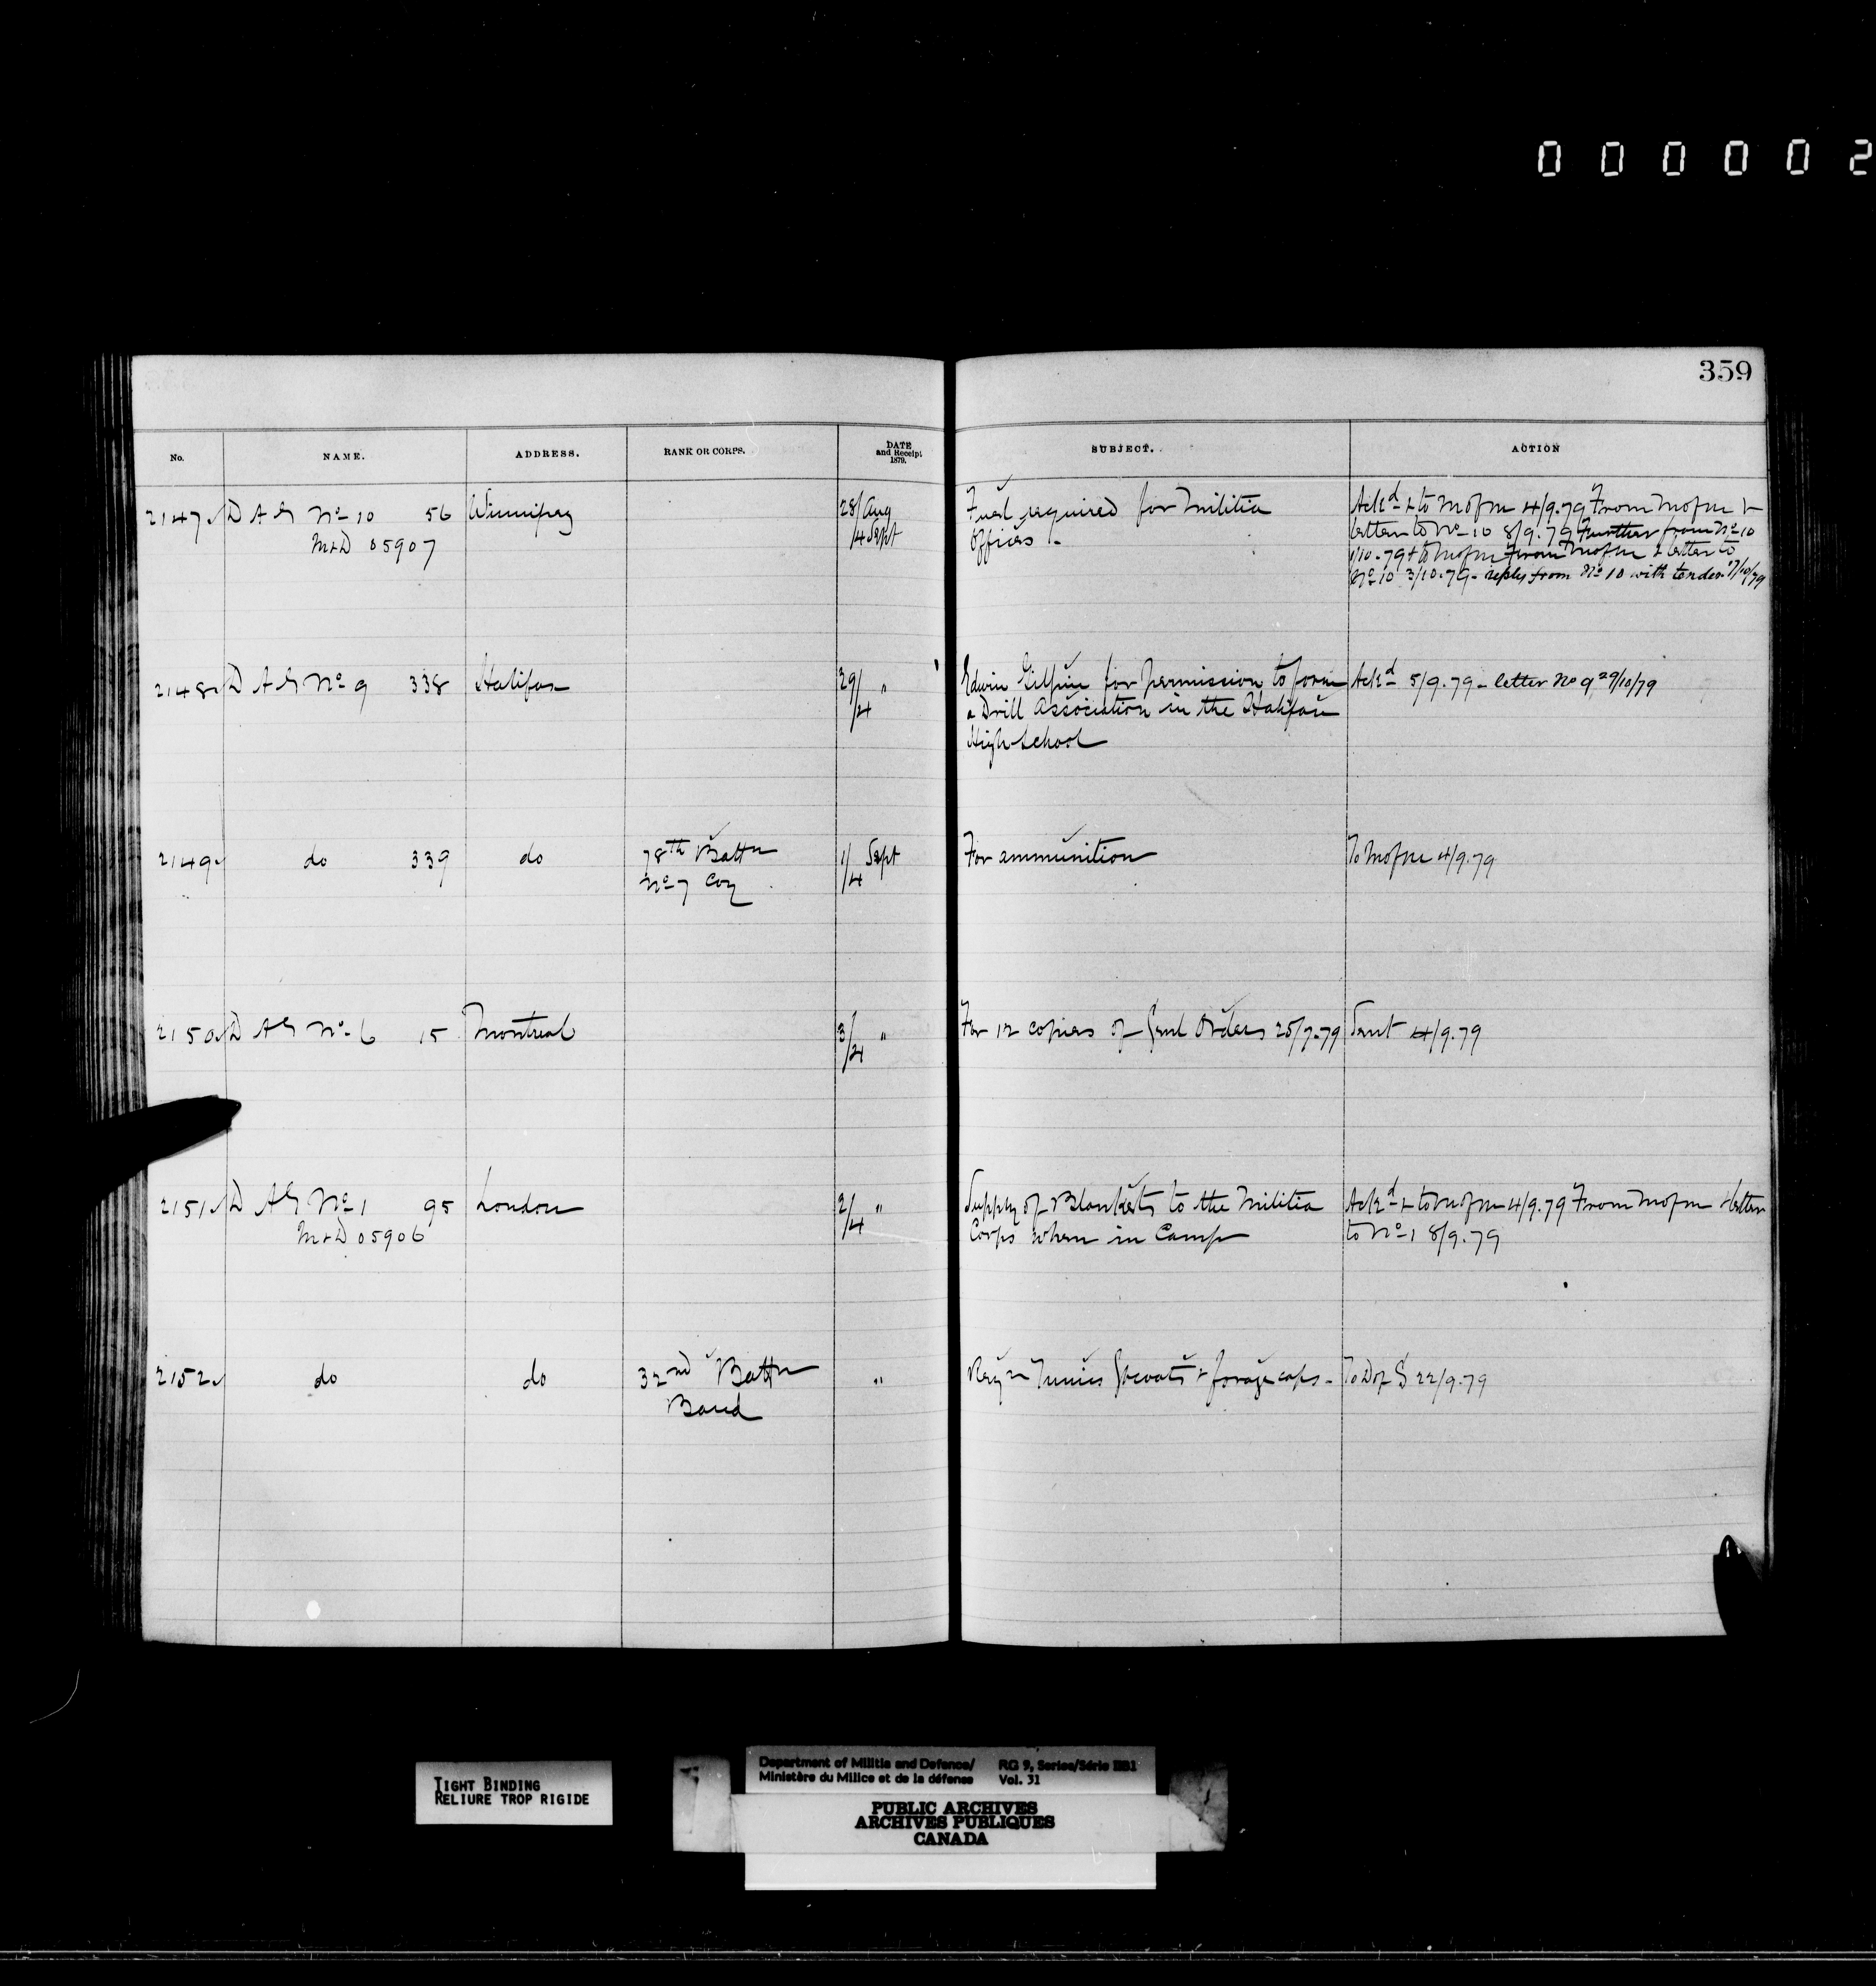 000002
359
No. NAME. ADDRESS. RANK OR CORPS. DATE and Receipt 1879. SUBJECT. ACTION
2147 D A G No 10 56 Winnipeg 28/Aug Fuel required for Militia Ackd & to M of M 4/9.79 From M of M &
M & D 05907 /4 Sept Offices - letter to No 10 8/9.79 Further from No 10
1/10.79 & to M of M From M of M & letter to
No 10 3/10.79 - reply from No 10 with tender 17/10/79
2148 D A G No 9 338 Halifax 29/4 " Edwin Gilpin for permission to form Ackd 5/9.79 - letter No 9 29/10/79
a Drill Association in the Halifax
High School
2149 do 339 do 78th Battn 1/4 Sept For ammunition To M of M 4/9.79
No 7 Coy
2150 D A G No 6 15 Montreal 3/4 " For 12 copies of Genl Orders 25/7.79 Sent 4/9.79
2151 D A G No 1 95 London 2/4 " Supply of Blankets to the Militia Ackd & to M of M 4/9.79 From M of M & letter
M & D 05906 Corps when in Camp to No 1 8/9.79
2152 do do 32nd Battn " Reqn Tunics Gt coats & forage caps - To D of S 22/9.79
Band
TIGHT BINDING
RELIURE TROP RIGIDE
Department of Militia and Defence/ RG 9, Series/Série IIB1
Ministère du Milice et de la défense Vol. 31
PUBLIC ARCHIVES
ARCHIVES PUBLIQUES
CANADA